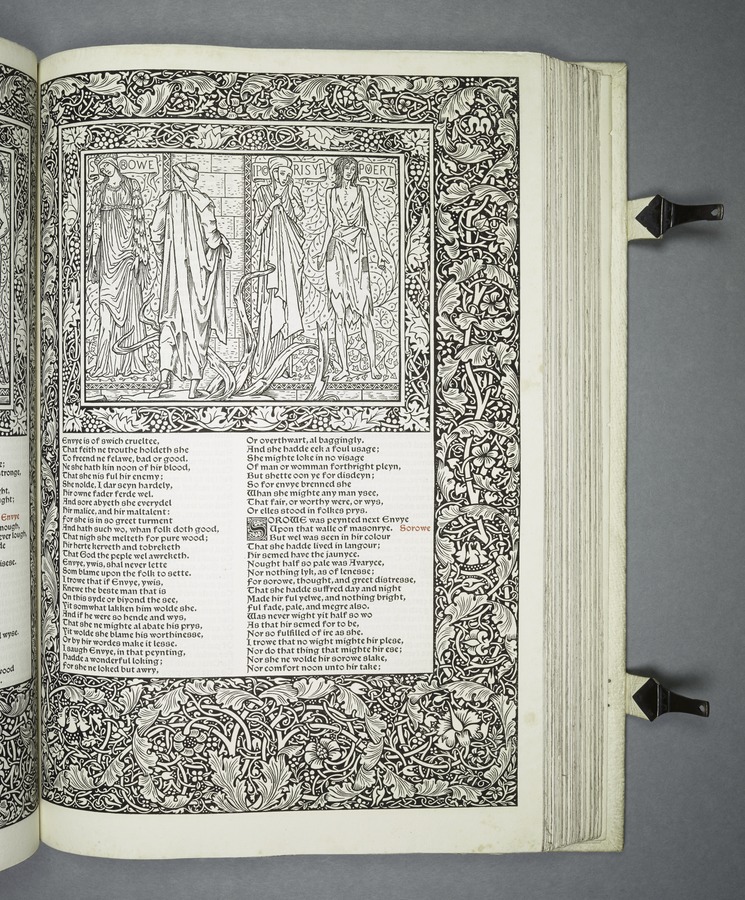 OWE
PO
RISYE
POERT
Envye is of swich crueltee,
That feith ne trouthe holdeth she
To freend ne felawe, bad or good.
Ne she hath kin noon of hir blood,
That she nis ful hir enemy;
She nolde, I dar seyn hardely,
Hir owne fader ferde wel.
And sore abyeth she everydel
Hir malice, and hir maltalent:
For she is in so greet turment
And hath such wo, whan folk doth good,
That nigh she melteth for pure wood;
Hir herte kerveth and tobreketh
That God the peple wel awreketh.
Envye, ywis, shal never lette
Som blame upon the folk to sette.
I trowe that if Envye, ywis,
Knewe the beste man that is
On this syde or biyond the see,
Yit somwhat lakken him wolde she.
And if he were so hende and wys,
That she ne mighte al abate his prys,
Yit wolde she blame his worthinesse,
Or by hir wordes make it lesse.
I saugh Envye, in that peynting,
Hadde a wonderful loking;
For she ne loked but awry,
Or overthwart, al baggingly.
And she hadde eek a foul usage;
She mighte loke in no visage
Of man or womman forthright pleyn,
But shette oon ye for disdeyn;
So for envye brenned she
Whan she mighte any man ysee,
That fair, or worthy were, or wys,
Or elles stood in folkes prys.
SOROWE was peynted next Envye
Upon that walle of masonrye. Sorowe
But wel was seen in hir colour
That she hadde lived in langour;
Hir semed have the jaunyce.
Nought half so pale was Avaryce,
Nor nothing lyk, as of lenesse;
For sorowe, thought, and greet distresse,
That she hadde suffred day and night
Made hir ful yelwe, and nothing bright,
Ful fade, pale, and megre also.
Was never wight yit half so wo
As that hir semed for to be,
Nor so fulfilled of ire as she.
I trowe that no wight mighte hir plese,
Nor do that thing that mighte hir ese;
Nor she ne wolde hir sorowe slake,
Nor comfort noon unto hir take;
Envye